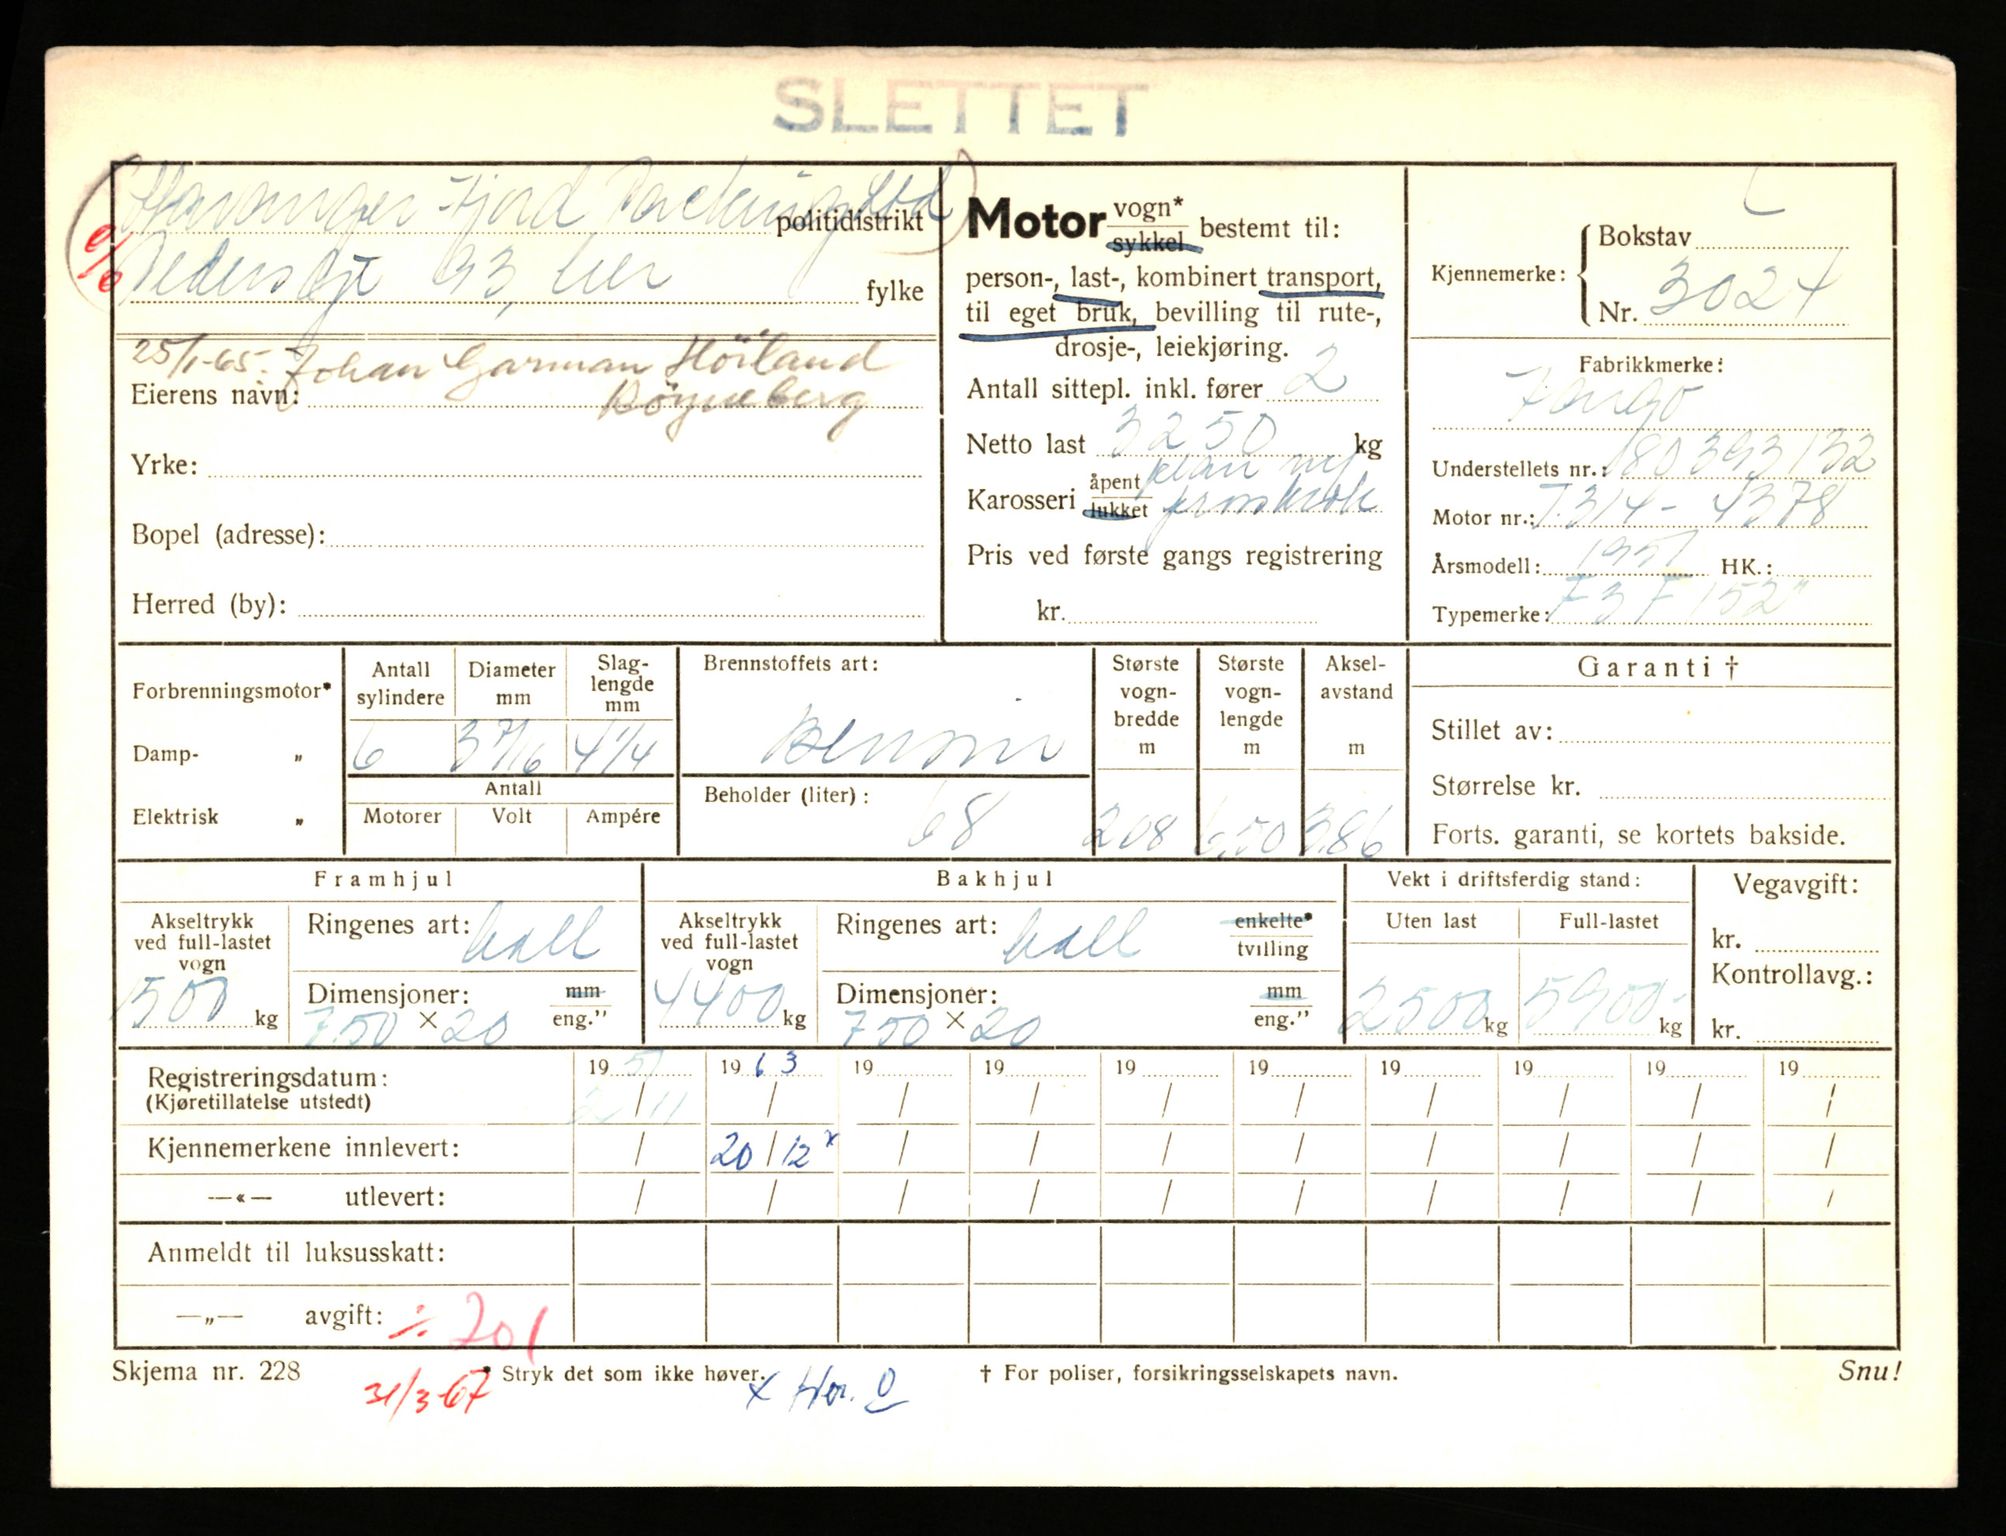 SLETTET
Stavanger Fjord Packing Ltd
politidistrikt
Pedersgt 93, her
fylke
25/1-65. Johan Garman Höiland
Eierens navn:
Yrke:
Bopel (adresse):
Herred (by):
Motor vogn* sykkel bestemt til:
person-, last-, kombinert transport,
til eget bruk, bevilling til rute-,
drosje-, leiekjøring.
Antall sittepl. inkl. fører 2
Netto last 3250 kg
Karosseri åpent lukket plan
Pris ved første gangs registrering
kr.
Kjennemerke: Bokstav L
Nr. 3024
Fabrikkmerke:
Fargo
Understellets nr.: 80393132
Motor nr.: T.314-4378
Årsmodell: 1951 HK.:
Typemerke: F3F152"
Forbrenningsmotor*
Damp- „
Elektrisk „
Antall sylindere
6
Diameter mm
3 7/16
Slag-lengde mm
4 1/4
Antall
Motorer Volt Ampére
Brennstoffets art:
Bensin
Beholder (liter): 68
Største vogn-bredde m
2,08
Største vogn-lengde m
6,50
Aksel-avstand m
3,86
Garanti †
Stillet av:
Størrelse kr.
Forts. garanti, se kortets bakside.
Framhjul
Akseltrykk ved full-lastet vogn
1500 kg
Ringenes art:
Dimensjoner: mm eng."
7.50 × 20
Bakhjul
Akseltrykk ved full-lastet vogn
4400 kg
Ringenes art: enkelte* tvilling
Dimensjoner: mm eng."
750 × 20
Vekt i driftsferdig stand:
Uten last Full-lastet
2500 kg 5900 kg
Vegavgift:
kr.
Kontrollavg.:
kr.
Registreringsdatum: 1951 1963 19 19 19 19 19 19 19 19
(Kjøretillatelse utstedt) 2/11 / / / / / / / / /
Kjennemerkene innlevert: / 20/12 x / / / / / / / /
—«— utlevert: / / / / / / / / / /
Anmeldt til luksusskatt:
—„— avgift: ÷ 701
Skjema nr. 228
* Stryk det som ikke høver.
† For poliser, forsikringsselskapets navn.
Snu!
31/3-67
x